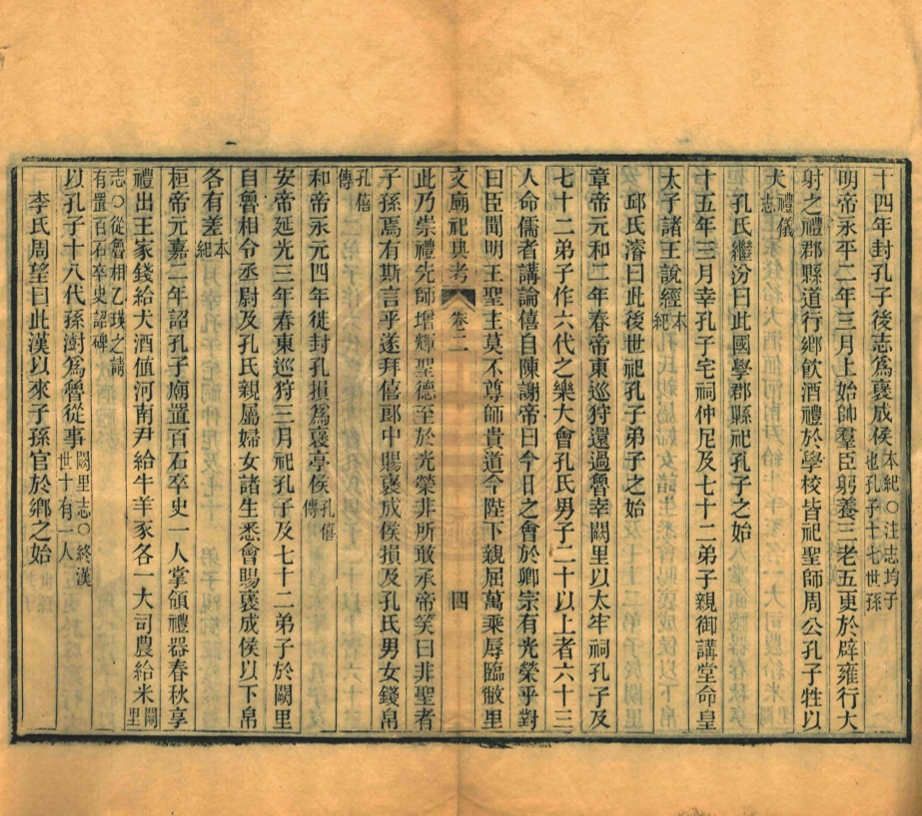 十四年封孔子後志爲褒成侯本紀○注志均子也孔子十七世孫
明帝永平二年三月上始帥羣臣躬養三老五更於辟雍行大
射之禮郡縣道行鄉飲酒禮於學校皆祀聖師周公孔子牲以
犬禮儀志
孔氏繼汾曰此國學郡縣祀孔子之始
十五年三月幸孔子宅祠仲尼及七十二弟子親御講堂命皇
太子諸王說經本紀
邱氏濬曰此後世祀孔子弟子之始
章帝元和二年春帝東巡狩還過魯幸闕里以太牢祠孔子及
七十二弟子作六代之樂大會孔氏男子二十以上者六十三
人命儒者講論僖自陳謝帝曰今日之會於卿宗有光榮乎對
曰臣聞明王聖主莫不尊師貴道今陛下親屈萬乘辱臨敝里
文廟祀典考 卷二 四
此乃崇禮先師增輝聖德至於光榮非所敢承帝笑曰非聖者
子孫焉有斯言乎遂拜僖郎中賜褒成侯損及孔氏男女錢帛
孔僖傳
和帝永元四年徙封孔損爲褒亭侯孔僖傳
安帝延光三年春東巡狩三月祀孔子及七十二弟子於闕里
自魯相令丞尉及孔氏親屬婦女諸生悉會賜褒成侯以下帛
各有差本紀
桓帝元嘉二年詔孔子廟置百石卒史一人掌領禮器春秋享
禮出王家錢給犬酒值河南尹給牛羊豕各一大司農給米闕里
志○從魯相乙瑛之請有置百石卒史詔碑
以孔子十八代孫澍爲魯從事闕里志○終漢世十有一人
李氏周望曰此漢以來子孫官於鄉之始